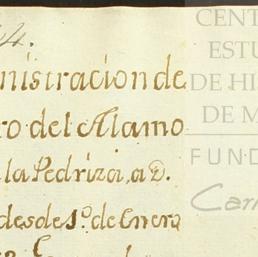 nistracion de
ro del Alamo
la Pedriza, a D.
desde 1.º de Enero
CENT
ESTU
DE HI
DE M
FUND